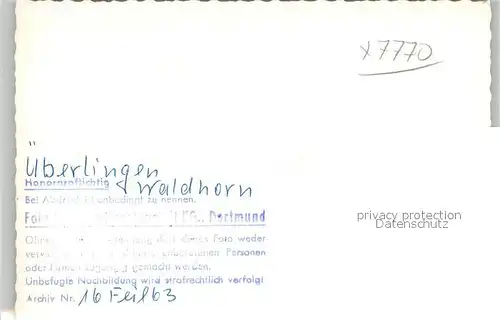 x 7770
Überlingen
Honorarpflichtig
Waldhorn
Bei Abdruck unbedingt zu nennen.
Foto KG., Dortmund
privacy protection
Datenschutz
Ohne darf dieses Foto weder
unbefugten Personen
oder Firmen zugängig gemacht werden.
Unbefugte Nachbildung wird strafrechtlich verfolgt
Archiv Nr. 16 Feil 63